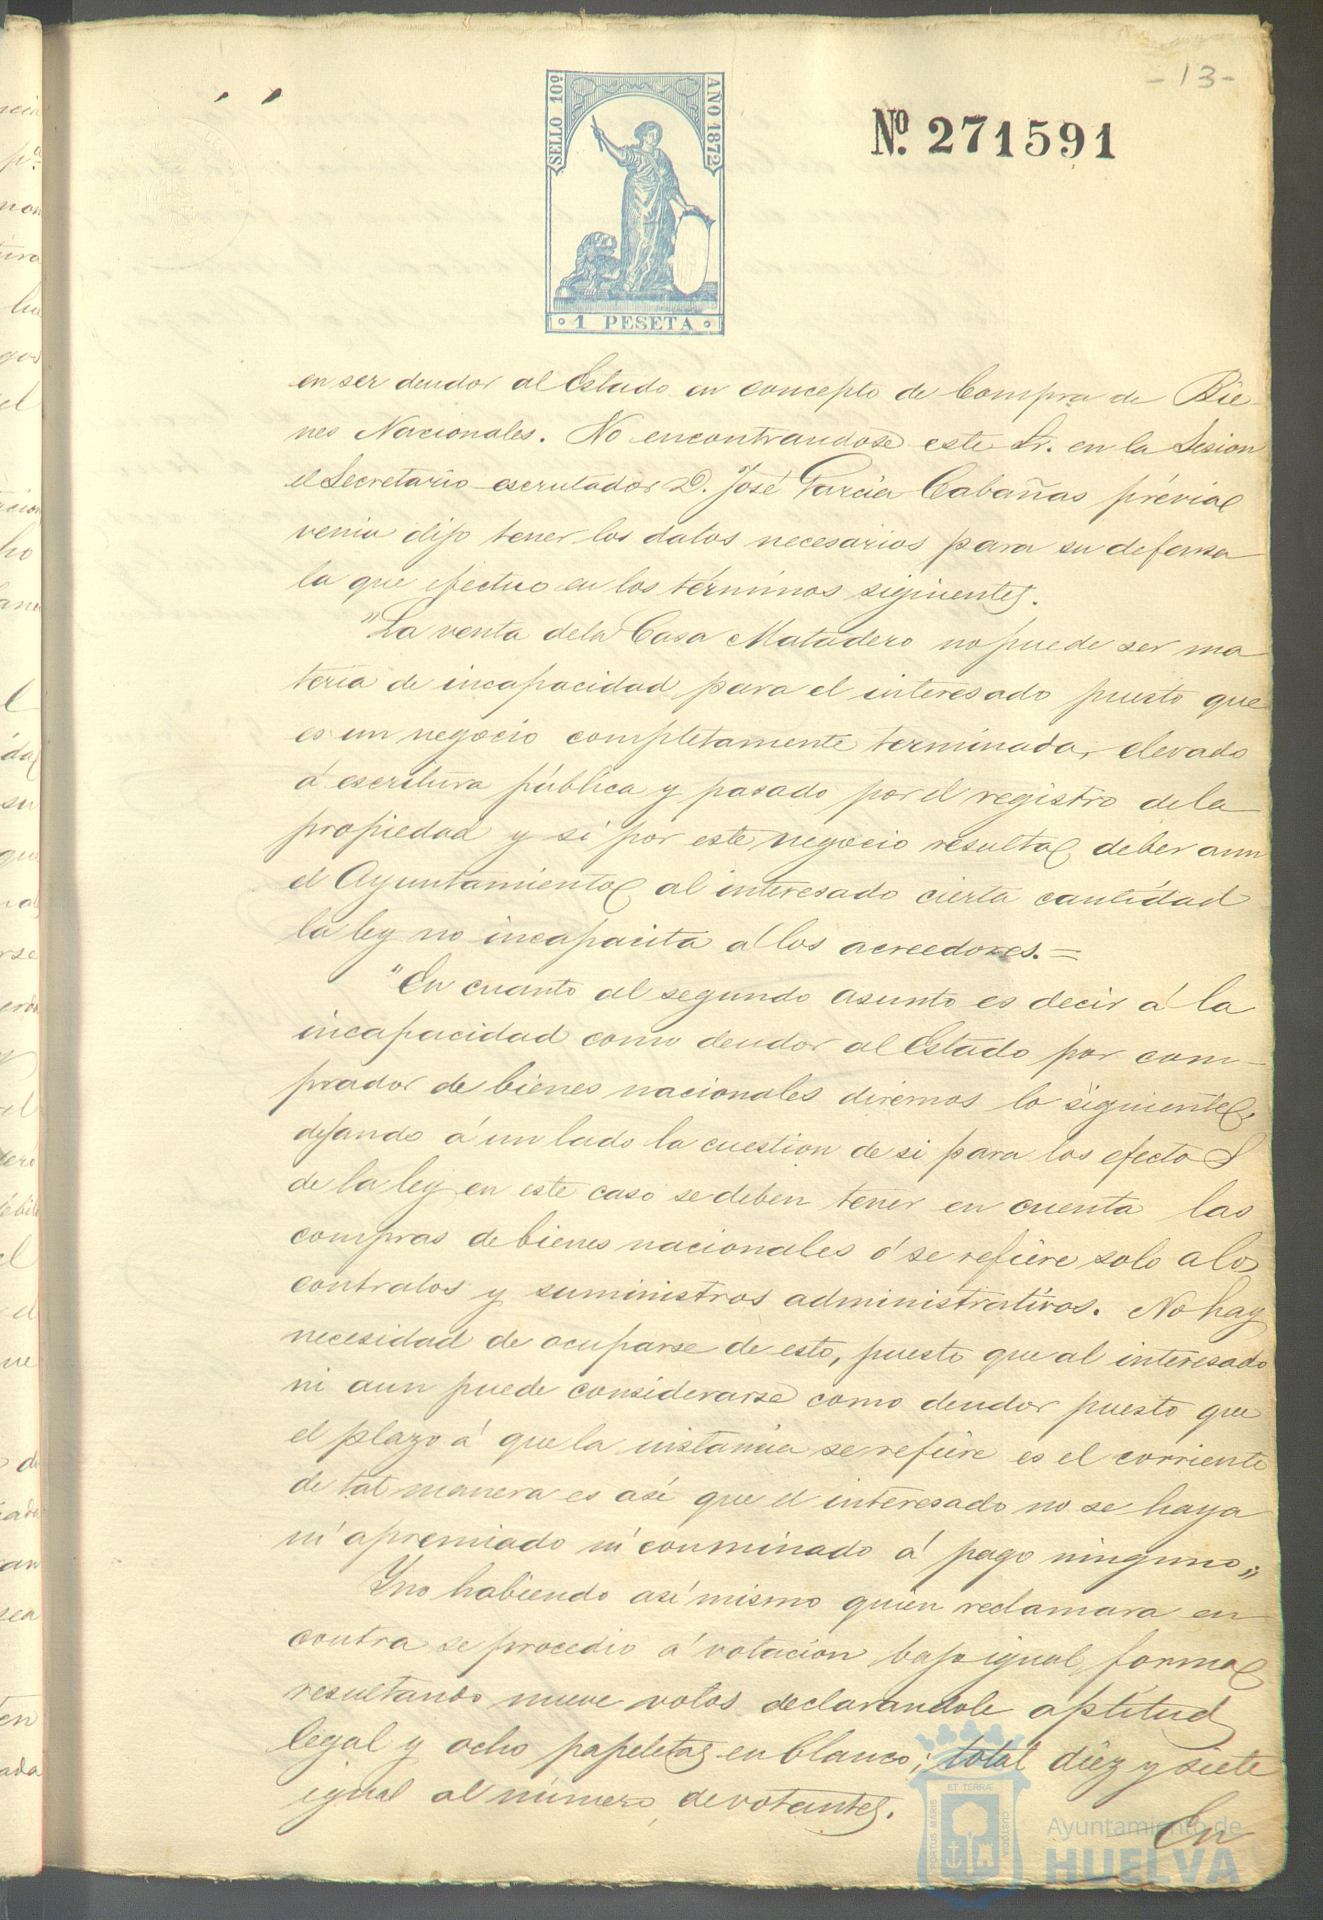 - 13 -
SELLO 10º
AÑO 1872
Nº. 271591
· 1 PESETA ·
en ser deudor al Estado en concepto de Compra de Bie-
nes Nacionales. No encontrandose este Sr. en la Sesion
el Secretario escrutador D. José Garcia Cabañas prévia
venia dijo tener los datos necesarios para su defensa
la que efectuo en los términos siguientes.
"La venta dela Casa Matadero no puede ser ma
teria de incapacidad para el interesado puesto que
es un negocio completamente terminado, elevado
á escritura pública y pasado por el registro de la
propiedad y si por este negocio resulta deber aun
el Ayuntamiento al interesado cierta cantidad
la ley no incapacita á los acreedores.=
"En cuanto al segundo asunto es decir á la
incapacidad como deudor al Estado por com-
prador de bienes nacionales diremos lo siguiente,
dejando á un lado la cuestion de si para los efectos
de la ley en este caso se deben tener en cuenta las
compras de bienes nacionales ó se refiere solo a los
contratos y suministros administrativos. No hay
necesidad de ocuparse de esto, puesto que al interesado
ni aun puede considerarse como deudor puesto que
el plazo á que la instancia se refiere es el corriente
de tal manera es asi que el interesado no se haya
ni apremiado ni conminado á pago ninguno"
Y no habiendo asi mismo quien reclamara en
contra se procedio á votacion bajo igual forma
resultando nueve votos declarandole aptitud
legal y ocho papeletas en blanco; total diez y siete
igual al número de votantes.
En
PORTUS MARIS ET TERRÆ CUSTODIA
Ayuntamiento de
HUELVA